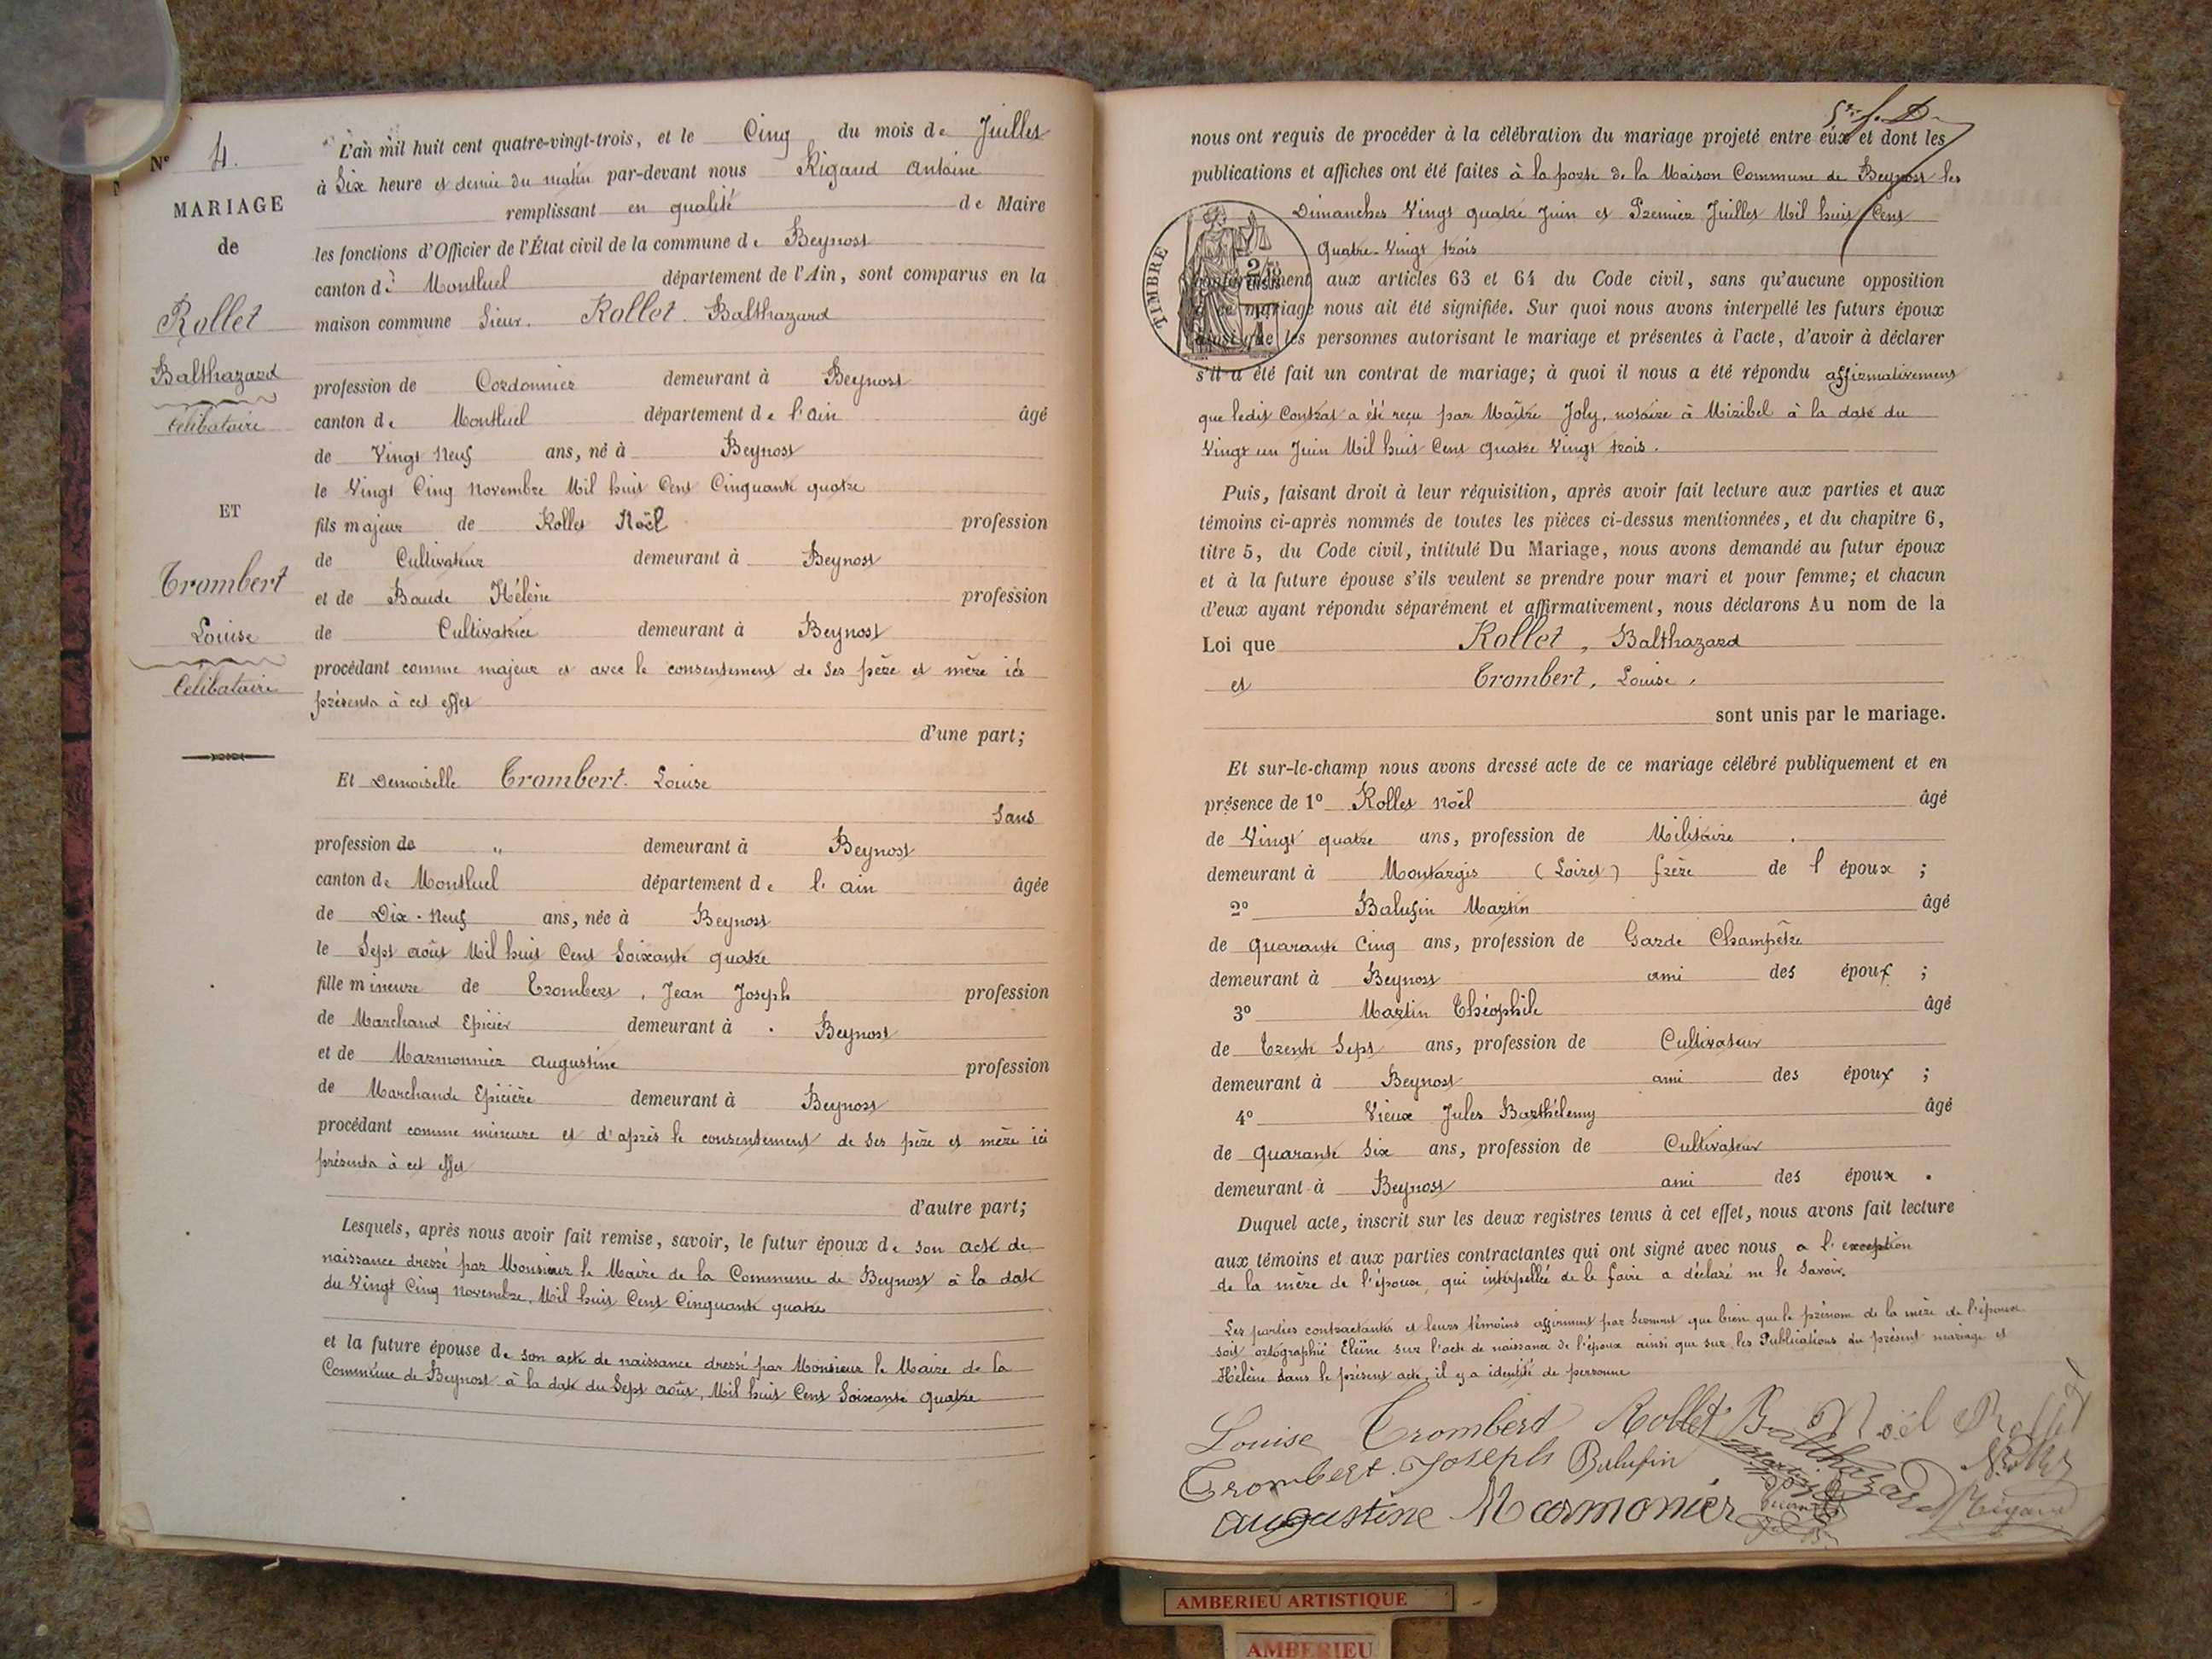 N° 4.
MARIAGE
de
Rollet
Balthazard
Célibataire
ET
Trombert
Louise
Célibataire
L'an mil huit cent quatre-vingt-trois, et le Cinq du mois de Juillet
à Six heure et demie du matin par-devant nous Rigaud Antoine
remplissant en qualité de Maire
les fonctions d'Officier de l'État civil de la commune de Beynost
canton de Montluel département de l'Ain, sont comparus en la
maison commune Sieur. Rollet. Balthazard
profession de Cordonnier demeurant à Beynost
canton de Montluel département de l'ain âgé
de Vingt Neuf ans, né à Beynost
le Vingt Cinq Novembre Mil huit Cent Cinquante quatre
fils majeur de Rollet Noël profession
de Cultivateur demeurant à Beynost
et de Baude Hélène profession
de Cultivatrice demeurant à Beynost
procédant comme majeur et avec le consentement de ses père et mère ici
présents à cet effet
d'une part;
Et Demoiselle Trombert. Louise
Sans
profession de " demeurant à Beynost
canton de Montluel département de l'ain âgée
de Dix-Neuf ans, née à Beynost
le Sept août Mil huit Cent Soixante quatre
fille mineure de Trombert, Jean Joseph profession
de Marchand Epicier demeurant à Beynost
et de Marmonnier augustine profession
de Marchande Epicière demeurant à Beynost
procédant comme mineure et d'après le consentement de ses père et mère ici
présents à cet effet
d'autre part;
Lesquels, après nous avoir fait remise, savoir, le futur époux de son acte de
naissance dressé par Monsieur le Maire de la Commune de Beynost à la date
du Vingt Cinq Novembre, Mil huit Cent Cinquante quatre
et la future épouse de son acte de naissance dressé par Monsieur le Maire de la
Commune de Beynost à la date du Sept août, Mil huit Cent Soixante quatre
nous ont requis de procéder à la célébration du mariage projeté entre eux et dont les
publications et affiches ont été faites à la porte de la Maison Commune de Beynost les
Dimanches Vingt quatre Juin et Premier Juillet Mil huit Cent
Quatre-Vingt trois
TIMBRE
conformément aux articles 63 et 64 du Code civil, sans qu'aucune opposition
à ce mariage nous ait été signifiée. Sur quoi nous avons interpellé les futurs époux
ainsi que les personnes autorisant le mariage et présentes à l'acte, d'avoir à déclarer
s'il a été fait un contrat de mariage; à quoi il nous a été répondu affirmativement
que ledit Contrat a été reçu par Maître Joly, notaire à Miribel à la date du
Vingt un Juin Mil huit Cent Quatre Vingt trois.
Puis, faisant droit à leur réquisition, après avoir fait lecture aux parties et aux
témoins ci-après nommés de toutes les pièces ci-dessus mentionnées, et du chapitre 6,
titre 5, du Code civil, intitulé Du Mariage, nous avons demandé au futur époux
et à la future épouse s'ils veulent se prendre pour mari et pour femme; et chacun
d'eux ayant répondu séparément et affirmativement, nous déclarons Au nom de la
Loi que Rollet, Balthazard
et Trombert, Louise,
sont unis par le mariage.
Et sur-le-champ nous avons dressé acte de ce mariage célébré publiquement et en
présence de 1° Rollet Noël âgé
de Vingt quatre ans, profession de Militaire
demeurant à Montargis (Loiret) frère de l'époux ;
2° Balufin Martin âgé
de quarante Cinq ans, profession de Garde Champêtre
demeurant à Beynost ami des époux ;
3° Martin Théophile âgé
de Trente Sept ans, profession de Cultivateur
demeurant à Beynost ami des époux ;
4° Vieux Jules Barthélemy âgé
de quarante Six ans, profession de Cultivateur
demeurant à Beynost ami des époux .
Duquel acte, inscrit sur les deux registres tenus à cet effet, nous avons fait lecture
aux témoins et aux parties contractantes qui ont signé avec nous a l'exception
de la mère de l'époux qui interpellée de le faire a déclaré ne le savoir.
Les parties contractantes et leurs témoins affirment par Serment que bien que le prénom de la mère de l'époux
soit ortographié Eleine sur l'acte de naissance de l'époux ainsi que sur les Publications du présent mariage et
Hélène dans le présent acte, il y a identité de personne
Louise Trombert Rollet Balthazard Noël Rollet
Trombert Joseph Balufin N Rollet
augustine Marmonier Rigaud
AMBERIEU ARTISTIQUE
AMBERIEU